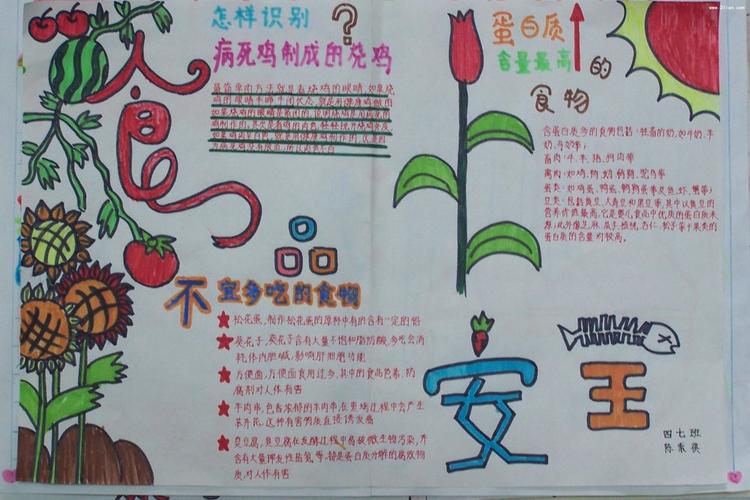 食
品
安
全
怎样识别?
病死鸡制成的烧鸡
最简单的方法就是看烧鸡的眼睛,如果烧
鸡的眼睛
不宜多吃的食物
松花蛋,制作松花蛋的原料中有的含有一定的铅
葵花子,葵花子含有大量不饱和脂肪酸,多吃会消
耗体内胆碱,影响肝细胞功能
方便面,方便面食用过多,其中的食品色素、防
腐剂对人体有害
牛肉串,色香浓郁的羊肉串,在熏烤过程中会产生
苯并芘,这种有害物质直接诱发癌
臭豆腐,臭豆腐在发酵过程中易被微生物污染,并
含有大量挥发性盐氮等,都是蛋白质分解的腐败物
质,对人体有害
蛋白质
含量最高的
食物
含蛋白质多的食物包括:牲畜的奶,如牛奶、羊
奶、马奶等;
畜肉:牛、羊、猪、狗肉等
禽肉:如鸡、鸭、鹅、鹌鹑、鸵鸟等
蛋类:如鸡蛋、鸭蛋、鹌鹑蛋等及鱼、虾、蟹等;
豆类:包括黄豆、大青豆和黑豆等,其中以黄豆的
营养价值最高,它是婴儿食品中优质的蛋白质来
源;此外像芝麻、瓜子、核桃、杏仁、松子等干果类的
蛋白质的含量均较高。
四七班
陈